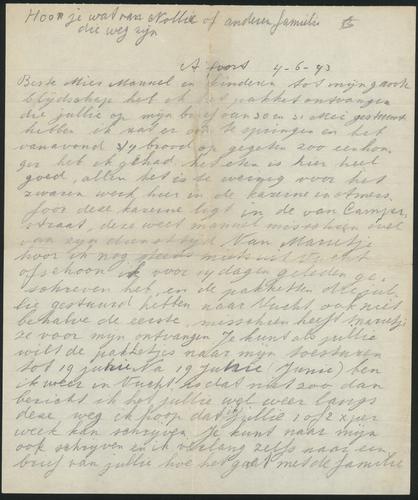 Hoor je wat van Nollie of anderen familie
die weg zijn
A foort 4-6-43
Beste Mies Manuel en kinderen tot mijn groote
blijdschap heb ik het pakket ontvangen
die jullie op mijn brief van 30 en 31 Mei gestuurd
hebben ik zat er om te springen en heb
vanavond 3/4 brood op gegeten zoo een hon
ger heb ik gehad het eten is hier heel
goed, alleen het is te weinig voor het
zwaren werk hier in de kazerne
deze kazerne ligt in de van Camper
straat, deze weet Manuel misschien wel
van zijn diensttijd Van Marietje
hoor ik nog steeds niets uit Vucht
ofschoon ik voor 14 dagen geleden ge
schreven heb, en de pakketten die jul
lie gestuurd hebben naar Vucht ook niet
behalve de eerste, misschien heeft Marietje
ze voor mijn ontvangen Je kunt als jullie
wilt de pakketjes naar mijn toesturen
tot 19 juni Na 19 (Junie) ben
ik weer in Vucht is dat niet zoo dan
bericht ik het jullie wel weer langs
deze weg ik hoop dat jullie 1 of 2 x per
week kan schrijven Je kunt naar mijn
ook schrijven en ik verlang zelfs naar een
brief van jullie hoe het gaat met de familie